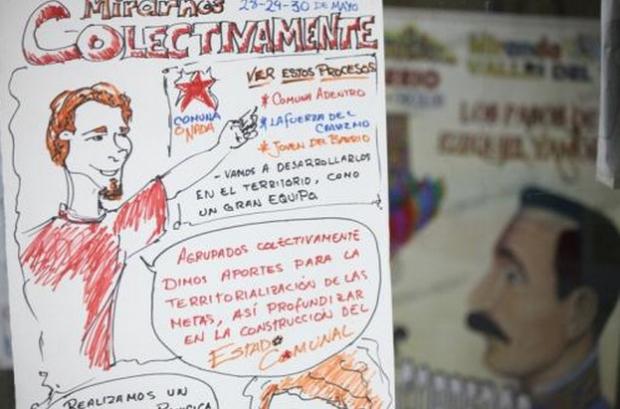 Mirarnos
28-29-30 DE MAYO
COLECTIVAMENTE
VIER ESTOS PROCESOS
COMUNA
O NADA
* COMUNA ADENTRO
* LA FUERZA DEL
CHAVIZMO
* JOVEN DEL BARRIO
- VAMOS A DESARROLLARLOS
EN EL TERRITORIO, COMO
UN GRAN EQUIPO
AGRUPADOS COLECTIVAMENTE
DIMOS APORTES PARA LA
TERRITORIALIZACIÓN DE LAS
METAS, ASÍ PROFUNDIZAR
EN LA CONSTRUCCIÓN DEL
ESTADO
COMUNAL
REALIZAMOS UN
Miranda
VALLES DEL
LOS